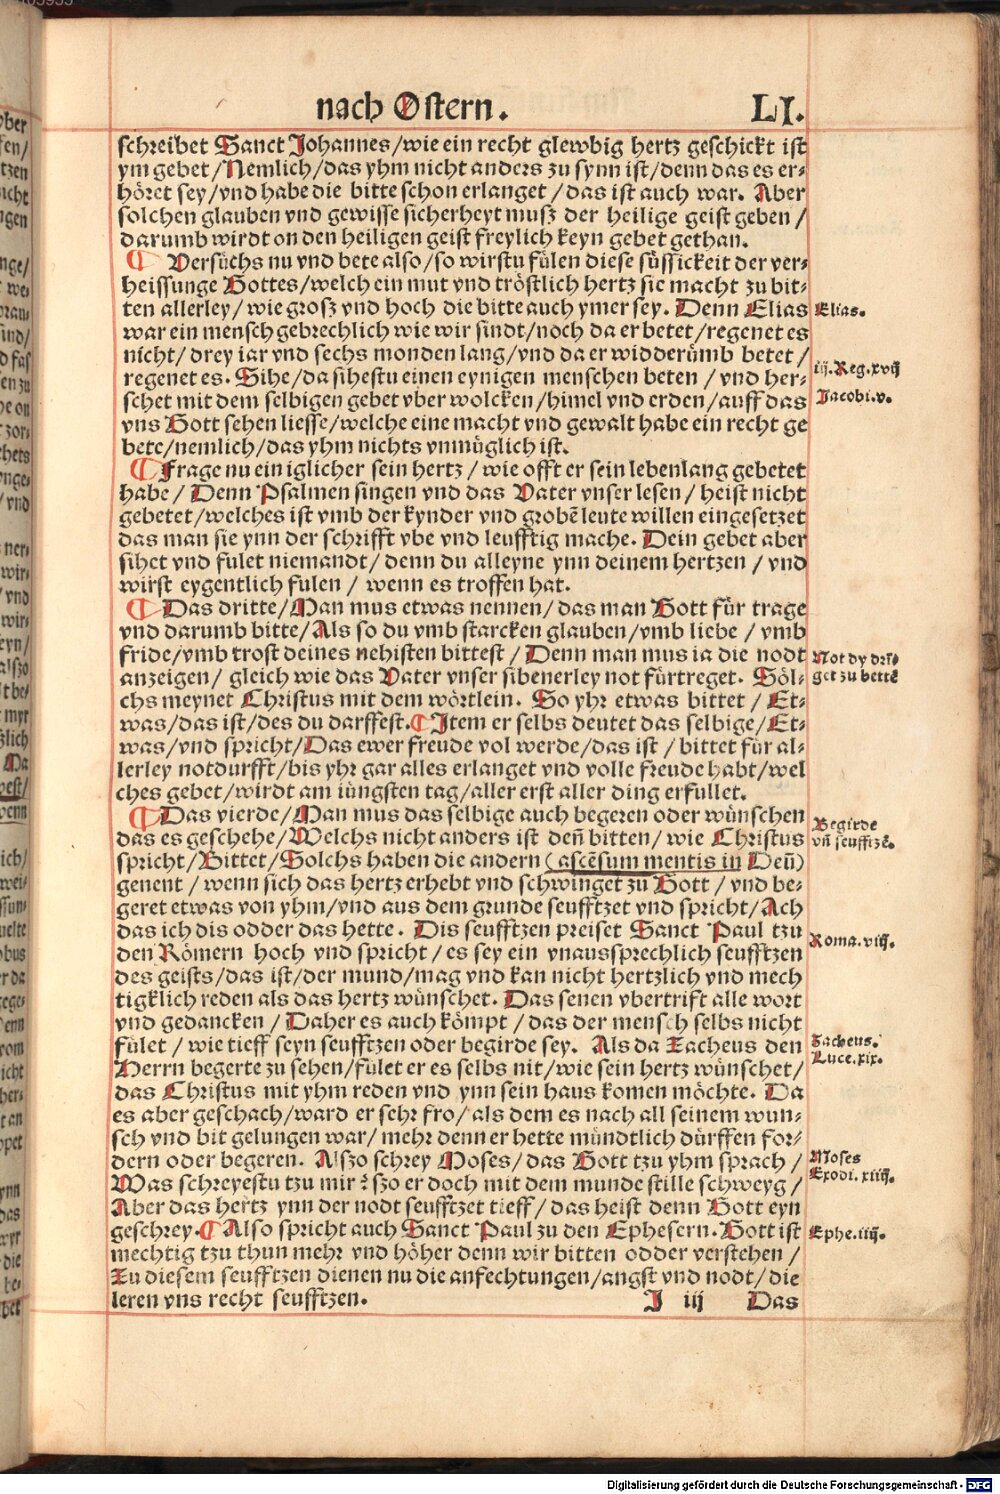 nach Ostern. LI.
schreibet Sanct Johannes/wie ein recht glewbig hertz geschickt ist
ym gebet/Nemlich/das yhm nicht anders zu synn ist/denn das es er-
höret sey/vnd habe die bitte schon erlanget/das ist auch war. Aber
solchen glauben vnd gewisse sicherheyt musz der heilige geist geben/
darumb wirdt on den heiligen geist freylich keyn gebet gethan.
¶ Versuchs nu vnd bete also/so wirstu fülen diese süssickeit der ver-
heissunge Gottes/welch ein mut vnd tröstlich hertz sie macht zu bit-
ten allerley/wie grosz vnd hoch die bitte auch ymer sey. Denn Elias
Elias.
war ein mensch gebrechlich wie wir sindt/noch da er betet/regenet es
nicht/drey iar vnd sechs monden lang/vnd da er widderümb betet/
regenet es. Sihe/da sihestu einen eynigen menschen beten/vnd her-
iij. Reg. xvij
schet mit dem selbigen gebet vber wolcken/himel vnd erden/auff das
Jacobi. v.
vns Gott sehen liesse/welche eine macht vnd gewalt habe ein recht ge
bete/nemlich/das yhm nichts vnmüglich ist.
¶ Frage nu ein iglicher sein hertz/wie offt er sein lebenlang gebetet
habe/Denn Psalmen singen vnd das Vater vnser lesen/heist nicht
gebetet/welches ist vmb der kynder vnd grobē leute willen eingesetzet
das man sie ynn der schrifft vbe vnd leufftig mache. Dein gebet aber
sihet vnd fulet niemandt/denn du alleyne ynn deinem hertzen/vnd
wirst eygentlich fulen/wenn es troffen hat.
¶ Das dritte/Man mus etwas nennen/das man Gott für trage
vnd darumb bitte/Als so du vmb starcken glauben/vmb liebe/vmb
fride/vmb trost deines nehisten bittest/Denn man mus ia die nodt
Not dy dri-
anzeigen/gleich wie das Vater vnser sibenerley not fürtreget. Söl-
get zu bettē
chs meynet Christus mit dem wörtlein. So yhr etwas bittet/Et-
was/das ist/des du darffest. ¶ Item er selbs deutet das selbige/Et-
was/vnd spricht/Das ewer freude vol werde/das ist/bittet für al-
lerley notdurfft/bis yhr gar alles erlanget vnd volle freude habt/wel
ches gebet/wirdt am iüngsten tag/aller erst aller ding erfullet.
¶ Das vierde/Man mus das selbige auch begeren oder wünschen
Begirde
das es geschehe/Welchs nicht anders ist deñ bitten/wie Christus
vñ seufftzē.
spricht/Bittet/Solchs haben die andern (ascēsum mentis in Deū)
genent/wenn sich das hertz erhebt vnd schwinget zu Gott/vnd be-
geret etwas von yhm/vnd aus dem grunde seufftzet vnd spricht/Ach
das ich dis odder das hette. Dis seufftzen preiset Sanct Paul tzu
den Römern hoch vnd spricht/es sey ein vnaussprechlich seufftzen
Roma. viij.
des geists/das ist/der mund/mag vnd kan nicht hertzlich vnd mech
tigklich reden als das hertz wünschet. Das senen vbertrift alle wort
vnd gedancken/Daher es auch kömpt/das der mensch selbs nicht
fület/wie tieff seyn seufftzen oder begirde sey. Als da Zacheus den
Zacheus.
Herrn begerte zu sehen/fület er es selbs nit/wie sein hertz wünschet/
Luce. xix.
das Christus mit yhm reden vnd ynn sein haus komen möchte. Da
es aber geschach/ward er sehr fro/als dem es nach all seinem wun-
sch vnd bit gelungen war/mehr denn er hette mündtlich dürffen for-
dern oder begeren. Alszo schrey Moses/das Gott tzu yhm sprach/
Moses
Was schreyestu tzu mir? szo er doch mit dem munde stille schweyg/
Exodi. xiiij.
Aber das hertz ynn der nodt seufftzet tieff/das heist denn Gott eyn
geschrey. ¶ Also spricht auch Sanct Paul zu den Ephesern. Gott ist
Ephe. iiij.
mechtig tzu thun mehr vnd höher denn wir bitten odder verstehen/
Zu diesem seufftzen dienen nu die anfechtungen/angst vnd nodt/die
leren vns recht seufftzen.
J iij Das
Digitalisierung gefördert durch die Deutsche Forschungsgemeinschaft - DFG